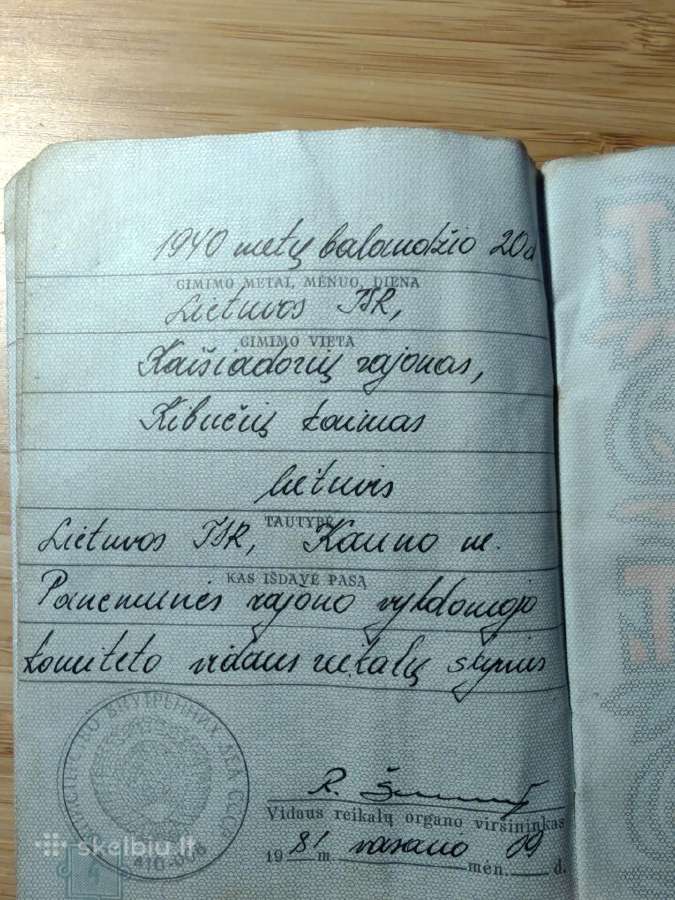 1940 metų balandžio 20 d
GIMIMO METAI, MĖNUO, DIENA
Lietuvos TSR,
GIMIMO VIETA
Kaišiadorių rajonas,
Kibučių kaimas
lietuvis
TAUTYBĖ
Lietuvos TSR, Kauno m.
KAS IŠDAVĖ PASĄ
Panemunės rajono vykdomojo
komiteto vidaus reikalų skyrius
МИНИСТЕРСТВО ВНУТРЕННИХ ДЕЛ СССР
R.
Vidaus reikalų organo viršininkas
1981 m. vasario 09 mėn. d.
410-008
skelbiu.lt
4